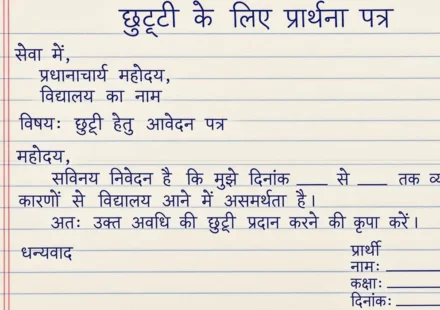 छुट्टी के लिए प्रार्थना पत्र
सेवा में,
प्रधानाचार्य महोदय,
विद्यालय का नाम
विषयः छुट्टी हेतु आवेदन पत्र
महोदय,
सविनय निवेदन है कि मुझे दिनांक ___ से ___ तक
कारणों से विद्यालय आने में असमर्थता है।
अतः उक्त अवधि की छुट्टी प्रदान करने की कृपा करें।
धन्यवाद
प्रार्थी
नामः ______
कक्षाः ______
दिनांकः ______